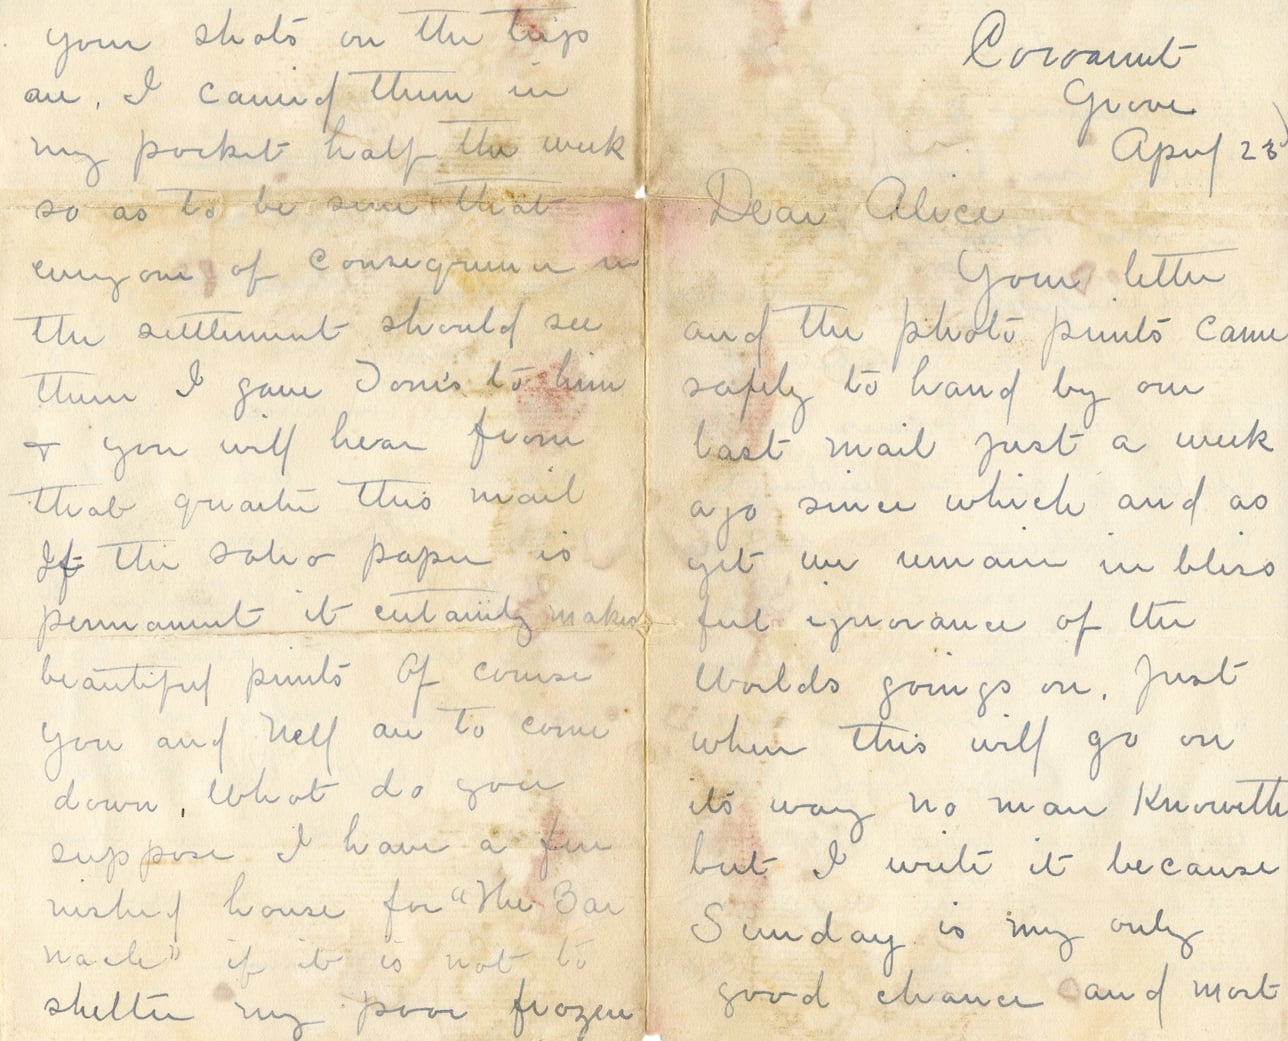 Cocoanut
Grove
April 23
Dear Alice
Your letter
and the photo prints came
safely to hand by our
last mail just a week
ago since which and as
yet we remain in bliss
ful ignorance of the
Worlds goings on. Just
when this will go on
its way no man Knoweth
but I write it because
Sunday is my only
good chance and most
your shots on the trip
are. I carried them in
my pocket half the week
so as to be sure that
everyone of consequence in
the settlement should see
them I gave Tom's to him
+ you will hear from
that quarter this mail
If the Solio paper is
permanent it certainly makes
beautiful prints Of course
you and Nell are to come
down. What do you
suppose I have a fur
nished house for "The Bar
nacle" if it is not to
shelter my poor frozen